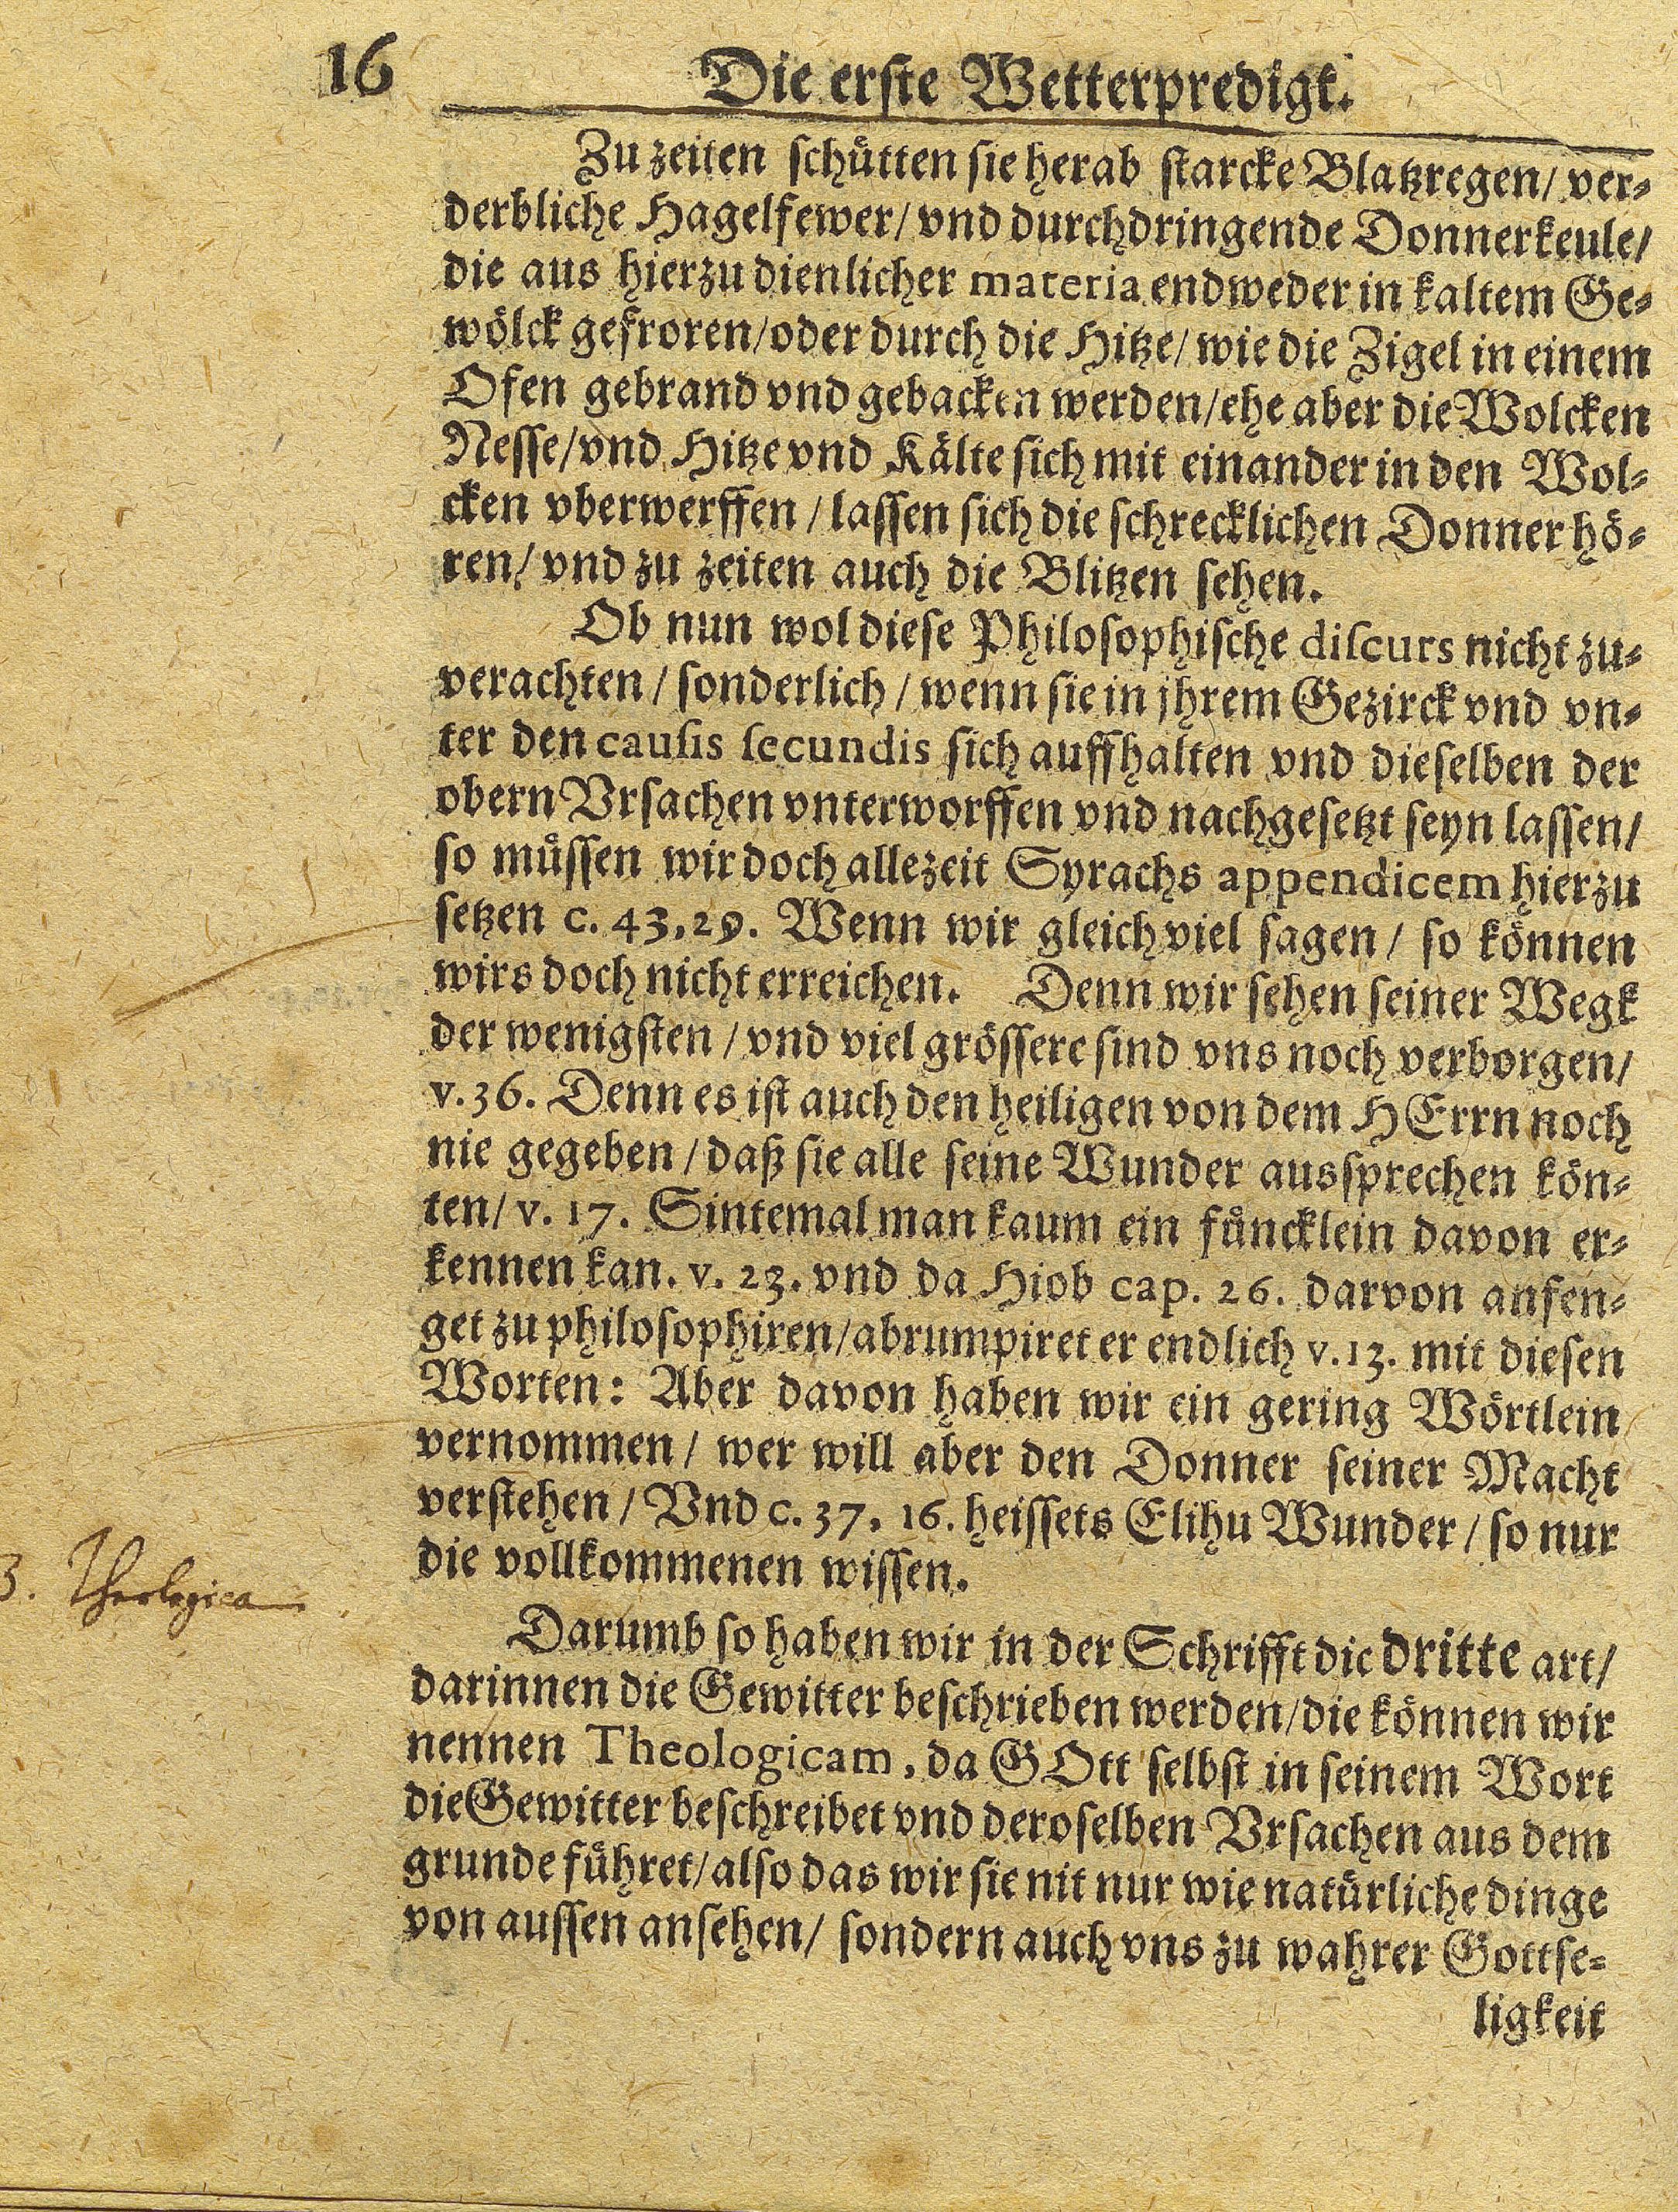 16
Die erste Wetterpredigt.
Zu zeiten schütten sie herab starcke Blatzregen/ ver-
derbliche Hagelfewer/ vnd durchdringende Donnerkeule/
die aus hierzu dienlicher materia endweder in kaltem Ge-
wölck gefroren/ oder durch die Hitze/ wie die Zigel in einem
Ofen gebrand vnd gebacken werden/ ehe aber die Wolcken
Nesse/ vnd Hitze vnd Kälte sich mit einander in den Wol-
cken vberwerffen / lassen sich die schrecklichen Donner hö-
ren/ vnd zu zeiten auch die Blitzen sehen.
Ob nun wol diese Philosophische discurs nicht zu-
verachten / sonderlich / wenn sie in jhrem Gezirck vnd vn-
ter den causis secundis sich auffhalten vnd dieselben der
obern Vrsachen vnterworffen vnd nachgesetzt seyn lassen/
so müssen wir doch allezeit Syrachs appendicem hierzu
setzen c. 43, 29. Wenn wir gleich viel sagen / so können
wirs doch nicht erreichen. Denn wir sehen seiner Wegk
der wenigsten / vnd viel grössere sind vns noch verborgen/
v. 36. Denn es ist auch den heiligen von dem HErrn noch
nie gegeben / daß sie alle seine Wunder aussprechen kön-
ten/ v. 17. Sintemal man kaum ein füncklein davon er-
kennen kan. v. 23. vnd da Hiob cap. 26. darvon anfen-
get zu philosophiren/ abrumpiret er endlich v. 13. mit diesen
Worten: Aber davon haben wir ein gering Wörtlein
vernommen / wer will aber den Donner seiner Macht
verstehen / Vnd c. 37, 16. heissets Elihu Wunder / so nur
die vollkommenen wissen.
3. Theologica
Darumb so haben wir in der Schrifft die dritte art/
darinnen die Gewitter beschrieben werden/ die können wir
nennen Theologicam, da GOtt selbst in seinem Wort
die Gewitter beschreibet vnd deroselben Vrsachen aus dem
grunde führet/ also das wir sie nit nur wie natürliche dinge
von aussen ansehen/ sondern auch vns zu wahrer Gottse-
ligkeit